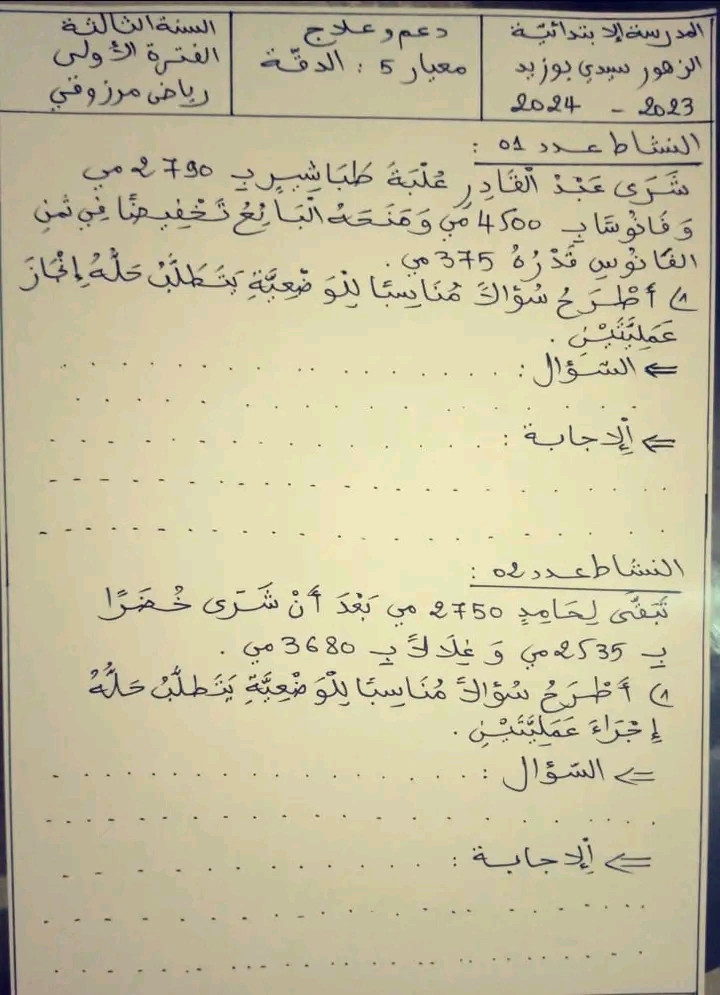 المدرسة الابتدائيّة
الزهور سيدي بوزيد
2023 - 2024
دعم وعلاج
معيار 5 : الدقّة
السنة الثالثة
الفترة الأولى
رياض مرزوقي
النشاط عدد 01 :
شَرَى عَبْدُ الْقَادِرِ عُلْبَةَ طَبَاشِيرٍ بِـ 2790 مي
وَ فَانُوسًا بِـ 4500 مي وَ مَنَحَهُ الْبَائِعُ تَخْفِيضًا فِي ثَمَنِ
الفَانُوسِ قَدْرُهُ 375 مي .
1) أَطْرَحُ سُؤَالاً مُنَاسِبًا لِلْوَضْعِيَّةِ يَتَطَلَّبُ حَلُّهُ إِنْجَازَ
عَمَلِيَّتَيْنِ .
⇐ السّؤال : . . . . . . . . . . . . . . . .
⇐ الإجابة : . . . . . . . . . . . . . . . .
النشاط عدد 02 :
تَبَقَّى لِحَامِدٍ 2750 مي بَعْدَ أَنْ شَرَى خُضَرًا
بِـ 2535 مي وَ غِلَالاً بِـ 3680 مي .
1) أَطْرَحُ سُؤَالاً مُنَاسِبًا لِلْوَضْعِيَّةِ يَتَطَلَّبُ حَلُّهُ
إِجْرَاءَ عَمَلِيَّتَيْنِ .
⇐ السّؤال : . . . . . . . . . . . . . . . .
⇐ الإجابة : . . . . . . . . . . . . . . . .